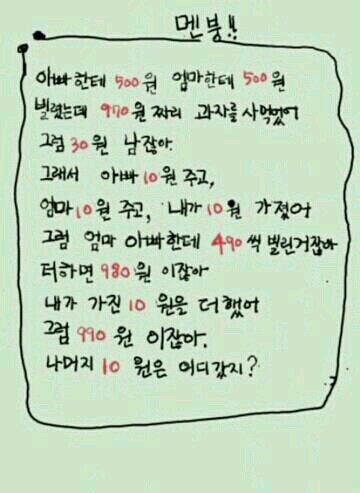 멘붕!!
아빠한테 500원 엄마한테 500원
빌렸는데 970원짜리 과자를 사먹었어
그럼 30원 남잖아.
그래서 아빠 10원 주고,
엄마 10원 주고, 내가 10원 가졌어
그럼 엄마 아빠한테 490씩 빌린거잖아
더하면 980원 이잖아
내가 가진 10 원을 더했어
그럼 990 원 이잖아.
나머지 10 원은 어디갔지?